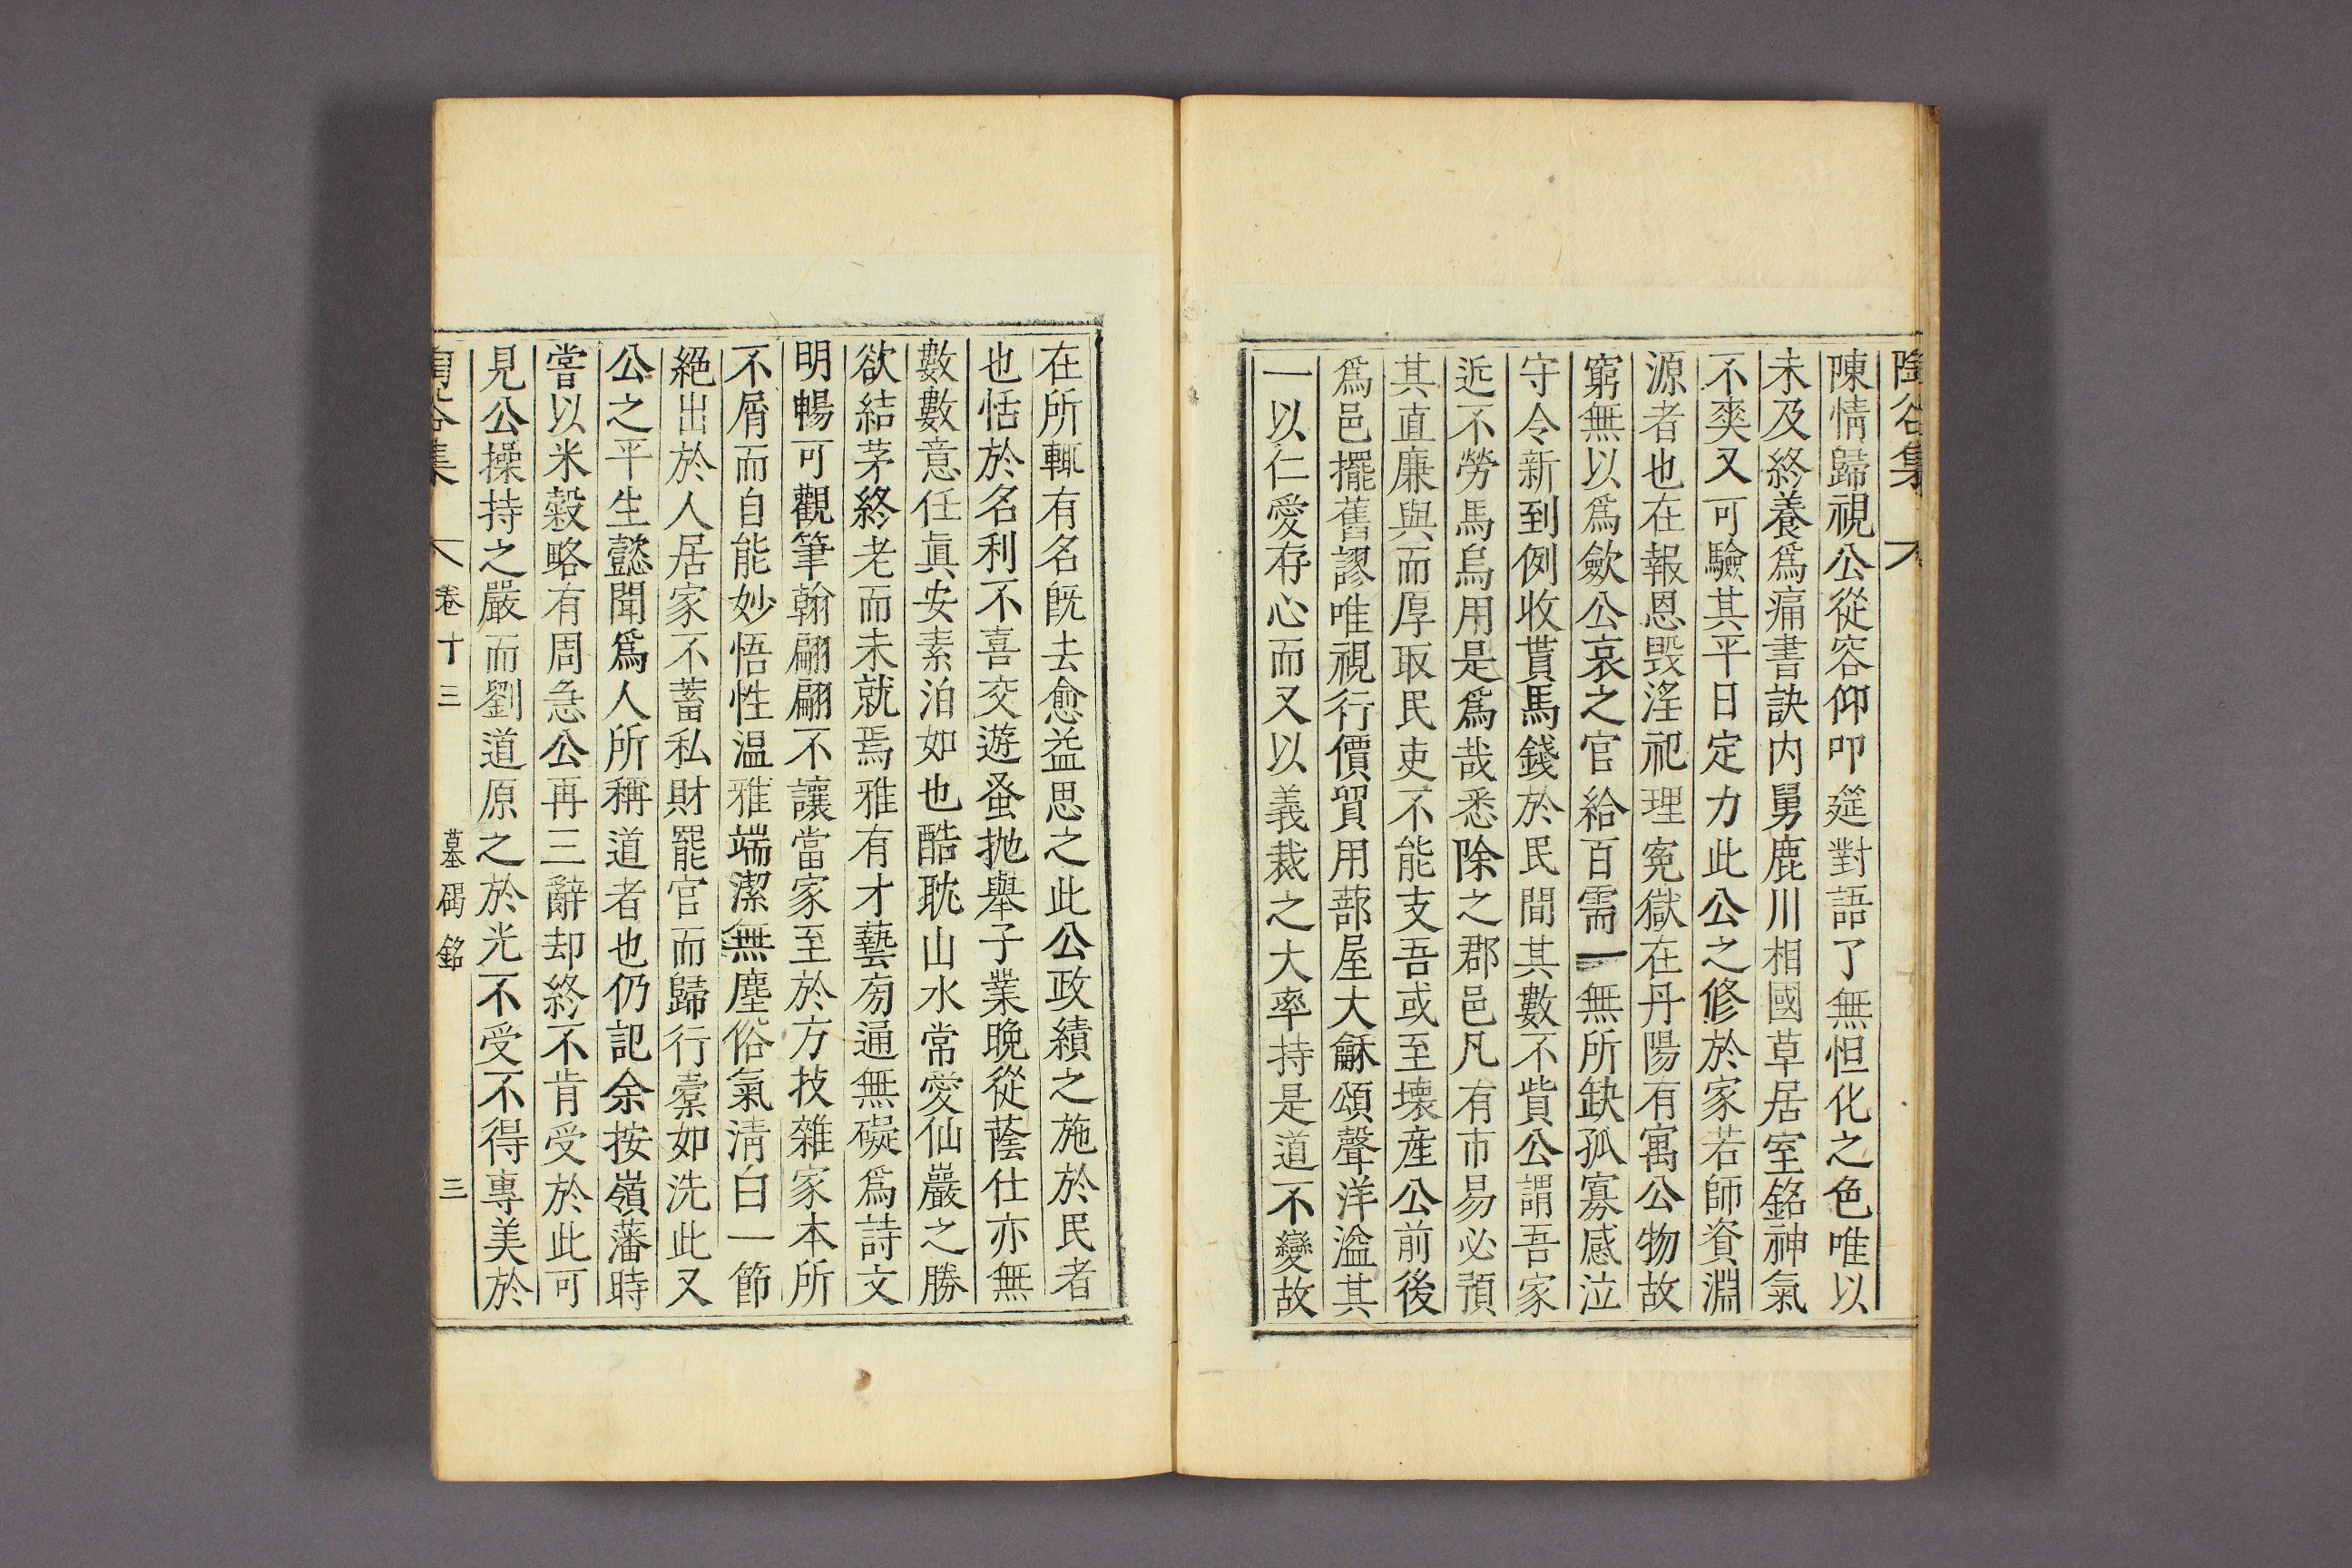 陶谷集
陳情歸視公從容仰叩筵對語了無怛化之色唯以
未及終養爲痛書訣内舅鹿川相國草居室銘神氣
不爽又可驗其平日定力此公之修於家若師資淵
源者也在報恩毀淫祀理寃獄在丹陽有寓公物故
窮無以爲歛公哀之官給百需一無所缺孤寡感泣
守令新到例收貰馬錢於民間其數不貲公謂吾家
近不勞馬烏用是爲哉悉除之郡邑凡有市易必預
其直廉與而厚取民吏不能支吾或至壊産公前後
爲邑擺舊謬唯視行價貿用蔀屋大龢頌聲洋溢其
一以仁愛存心而又以義裁之大率持是道不變故
在所輒有名旣去愈益思之此公政績之施於民者
也恬於名利不喜交遊蚤抛舉子業晩從蔭仕亦無
數數意任眞安素泊如也酷耽山水常愛仙嚴之勝
欲結茅終老而未就焉雅有才藝旁通無礙爲詩文
明暢可觀筆翰翩翩不讓當家至於方技雜家本所
不屑而自能妙悟性温雅端潔無塵俗氣淸白一節
絕出於人居家不蓄私財罷官而歸行槖如洗此又
公之平生懿聞爲人所稱道者也仍記余按嶺藩時
嘗以米穀略有周急公再三辭却終不肯受於此可
見公操持之嚴而劉道原之於光不受不得專美於
陶谷集 卷十三 墓碣銘 三